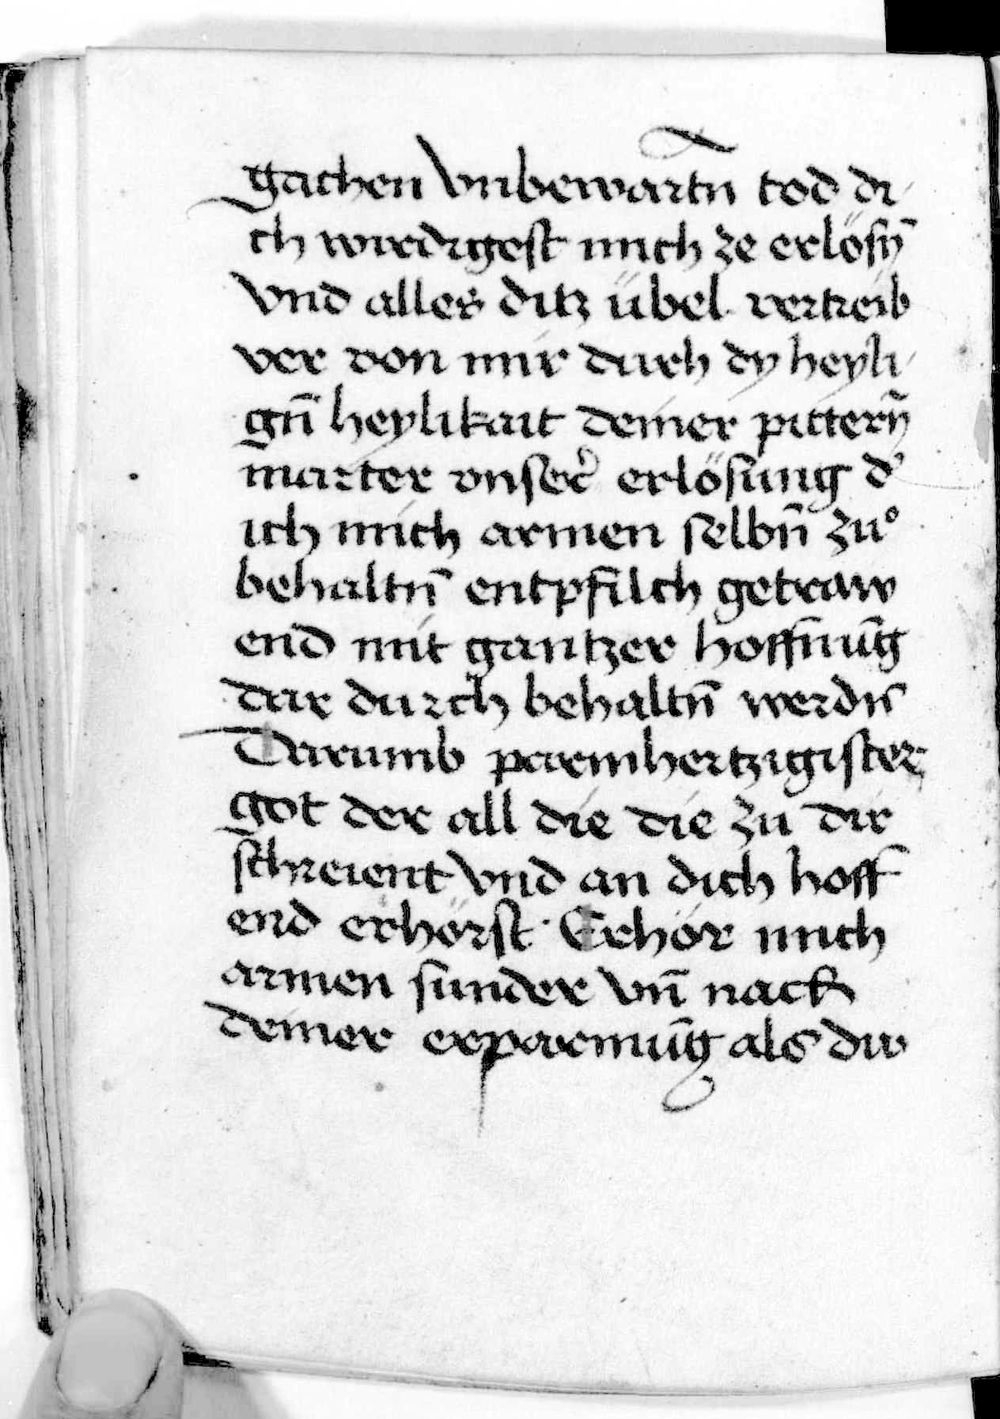 gachen vnbewartn̄ tod di
ch wirdigest mich ze erlösn̄
Vnd alles ditz übel vertreib
ver von mir durch dy heyli
gn̄ heylikait deiner pittern̄
marter vnser̉ erlösung d̉
ich mich armen selbn̄ zu°
behaltn̄ entpfilch getraw
end mit gantzer hoffnūg
dar durch behaltn̄ werdn̄
Darumb parmhertzigister
got der all die die zu dir
schreient vnd an dich hoff
end erhörst Erhör mich
armen sunder vn̄ nack
deiner erparmūg als du